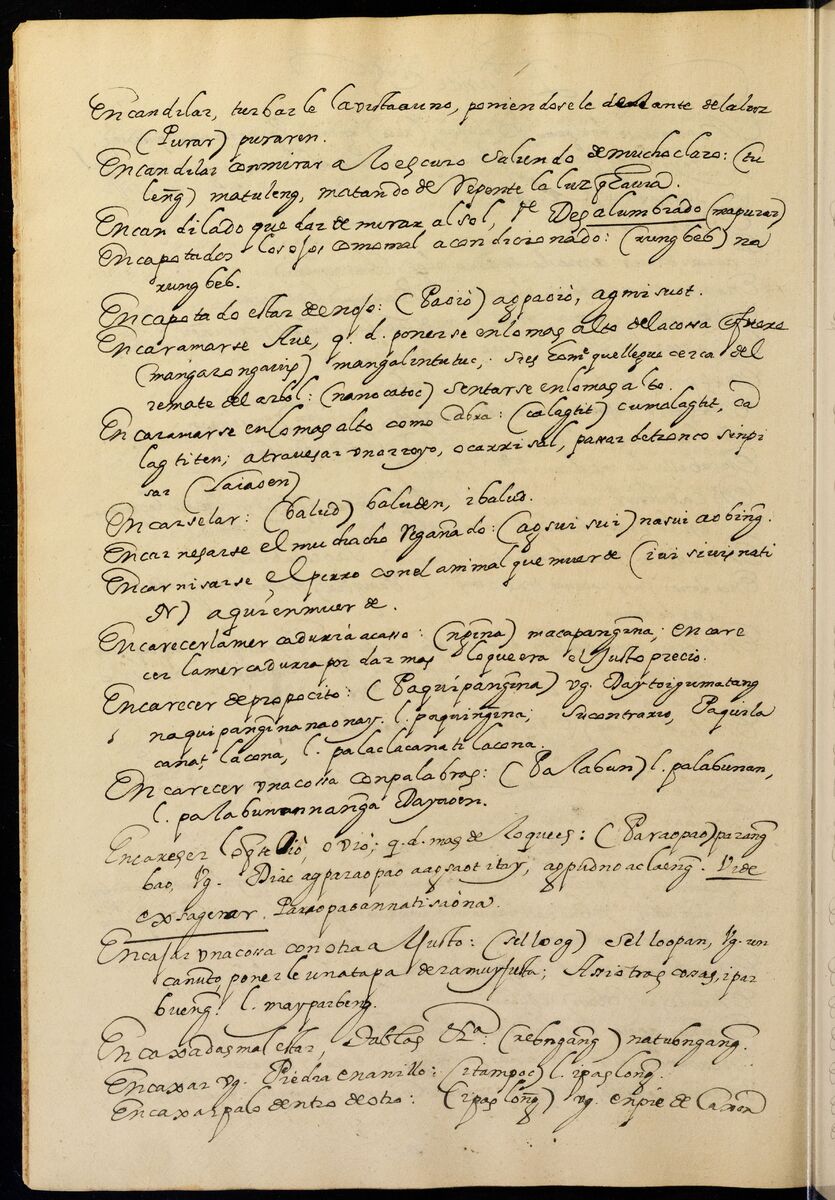 Encandilar, turbarle la vista a uno, poniendosele delante de la luz
(Purar) puraren.
Encandilar con mirar a lo escuro saliendo de mucho claro: (tu
leng̃) matuleng, matando de repente la luz
Encandilado quedar de mirar al sol, Desalumbrado (mapurar)
Encapotados los ojos, como mal acondicionado: (rungbeb) na
rungbeb.
Encapotado estar de nojo: (Paoiò) agpaoiò, agmisuot.
Encaramarse Aue, q. d. ponerse en lo mas alto de la cossa
mangalintutuc, que llegue cerca del
remate del arbol: (nanocatoc) sentarse en lo mas alto.
Encaramarse en lo mas alto como cabra: (calagtit) cumalagtit, ca
lagtiten; atravesar un arroyo, o carrisal, passar de tronco sin pi
sar
Encarselar: (balud) baluden, ibalud.
Encarnesarse el muchacho (agsui sui) nasui
Encarnisarse el perro con el animal que muerde
N) a quien muerde.
Encarecer la mercaduria acasso: (ng̃ina) macapang̃ina, encare
cer la mercaduria por dar mas lo que era el justo precio.
Encarecer de propocito: (Paquipang̃ina) vg. Daytoi gumatang
naquipang̃ina naonay. l. paquing̃ina; su contrario, Paquila
cana, lacona, l. palaclacanati lacona.
Encarecer una cossa con palabras: (Palabun) l. palabunan,
l. palabunannang̃a
Encareser lo q̃ se oiò, o viò; q. d. mas de lo que es: (Paraopao) parang
bao, Vg. Diac agparaopao aagsaot itay, Vide
exsagerar. Paraopaoannati saona.
Encajar una cossa con otra a justo: (selloog) selloopan, Vg. un
canuto, ponerle una tapa de tamuy justa; Assi otras cosas, ipar
bueng̃. l. mayparbeng.
Encaxadas mal estar, tablas &ª: (rebngang̃) natubngang̃.
Encaxar vg. Piedra en anillo: (itampoc) l. ipaslong̃.
Encaxar palo dentro de otro: (ipaslong̃) vg. en pie de